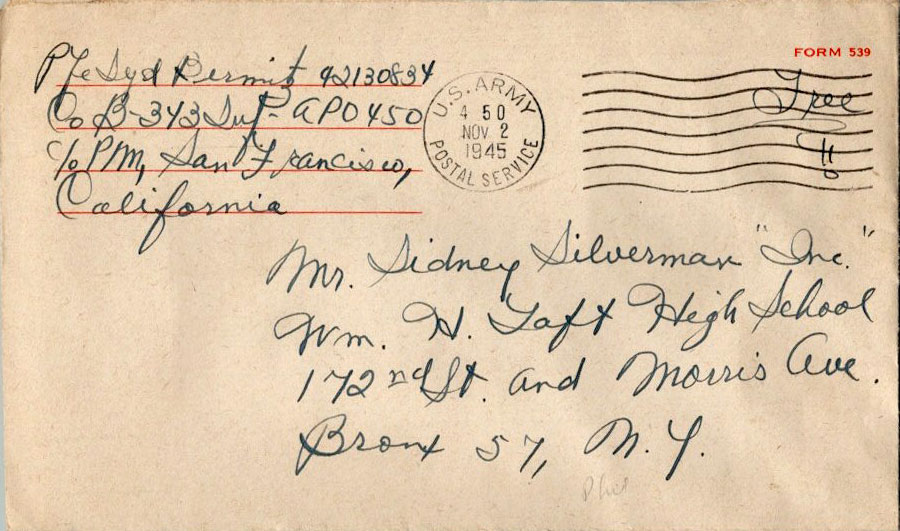 FORM 539
Pfc Syd Bermit 42130834
Co B-343 Inf- APO 450
c/o PM, San Francisco,
California
U.S. ARMY
4 50
NOV 2
1945
POSTAL SERVICE
Free
Mr. Sidney Silverman "Inc."
Wm. H. Taft High School
172nd St. and Morris Ave.
Bronx 57, N.Y.